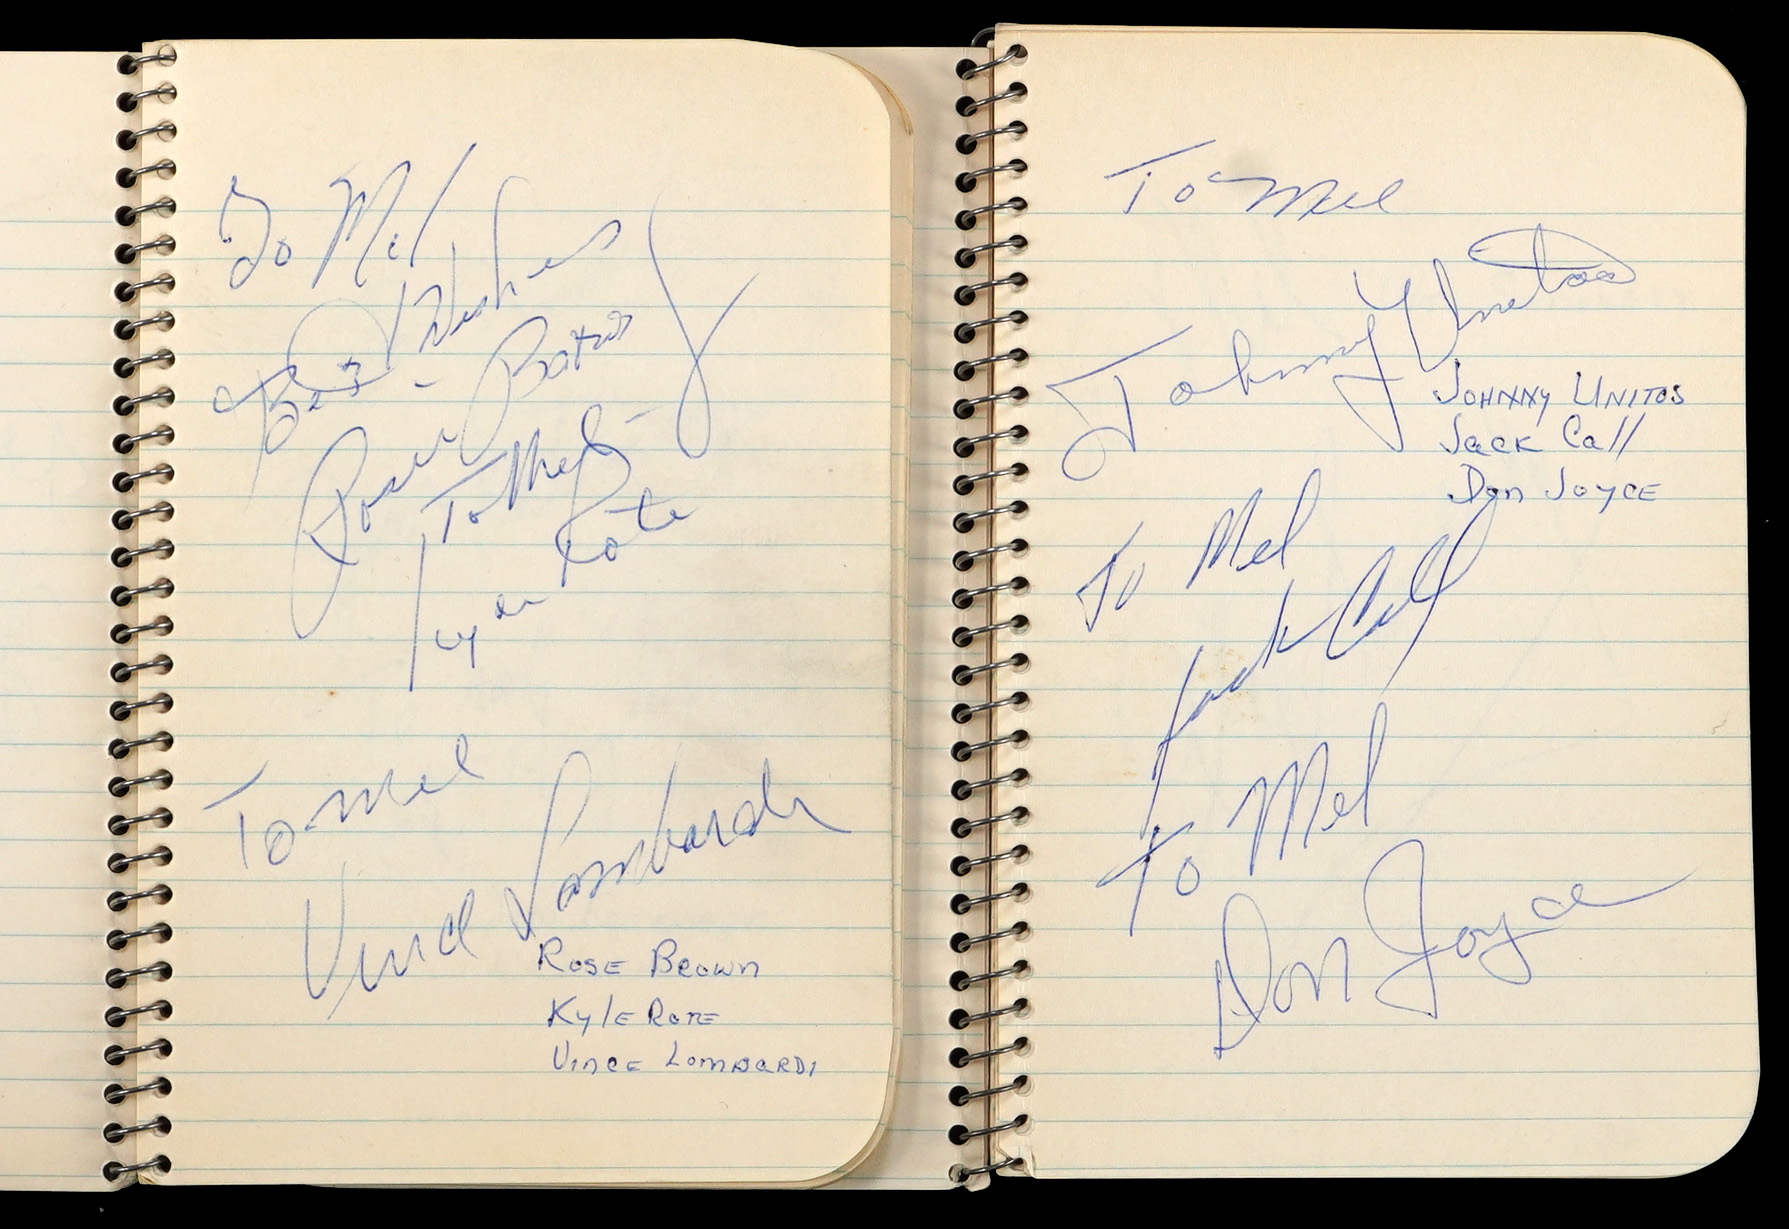 To Mel
Best Wishes
Rosie Brown
To Mel
Kyle Rote
To Mel
Vince Lombardi
ROSE BROWN
KylE ROTE
VINCE LOMBARDI
To Mel
Johnny Unitas
JOHNNY UNITOS
Jack Call
Don JOYCE
To Mel
Jack Call
To Mel
Don Joyce